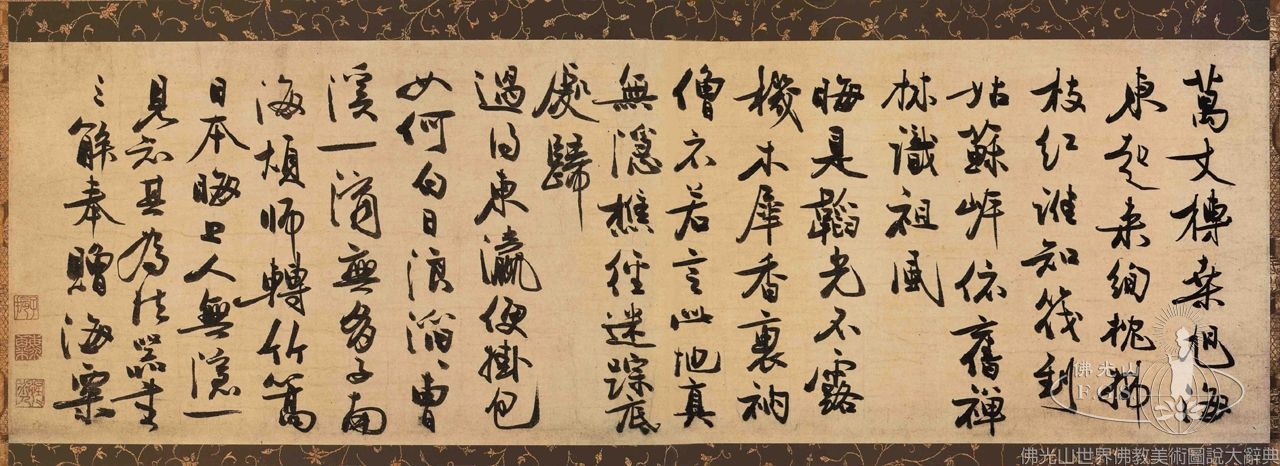 萬丈榑桑旭海
東起來絢桄拂
枝紅誰知筏到
姑蘇岸依舊禪
林識祖風
晦是韜光不露
機木犀香裏衲
僧衣若言此地真
無隱樵徑迷蹤底
處歸
過得東瀛便掛包
如何白日浪滔滔曹
溪一滴無多子南
海煩師轉竹篙
日本晦上人無隱一
見知其為法器書
三解奉贈海粟
佛光山
F.G.S
佛光山世界佛教美術圖說大辭典